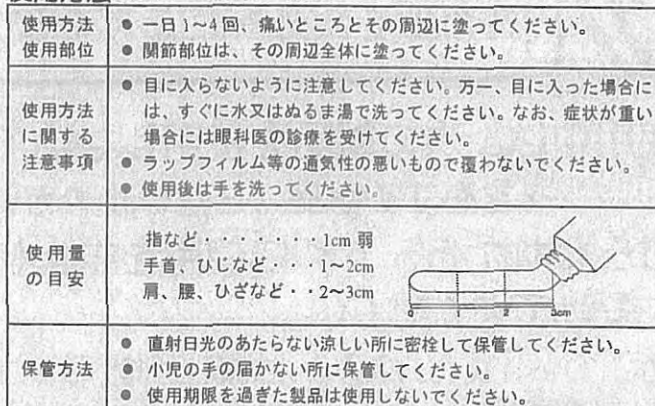 使用方法
使用部位
● 一日1〜4回、痛いところとその周辺に塗ってください。
● 関節部位は、その周辺全体に塗ってください。
使用方法
に関する
注意事項
● 目に入らないように注意してください。万一、目に入った場合に
は、すぐに水又はぬるま湯で洗ってください。なお、症状が重い
場合には眼科医の診療を受けてください。
● ラップフィルム等の通気性の悪いもので覆わないでください。
● 使用後は手を洗ってください。
使用量
の目安
指など・・・・・・・1cm 弱
手首、ひじなど・・・1〜2cm
肩、腰、ひざなど・・2〜3cm
0 1 2 3cm
保管方法
● 直射日光のあたらない涼しい所に密栓して保管してください。
● 小児の手の届かない所に保管してください。
● 使用期限を過ぎた製品は使用しないでください。